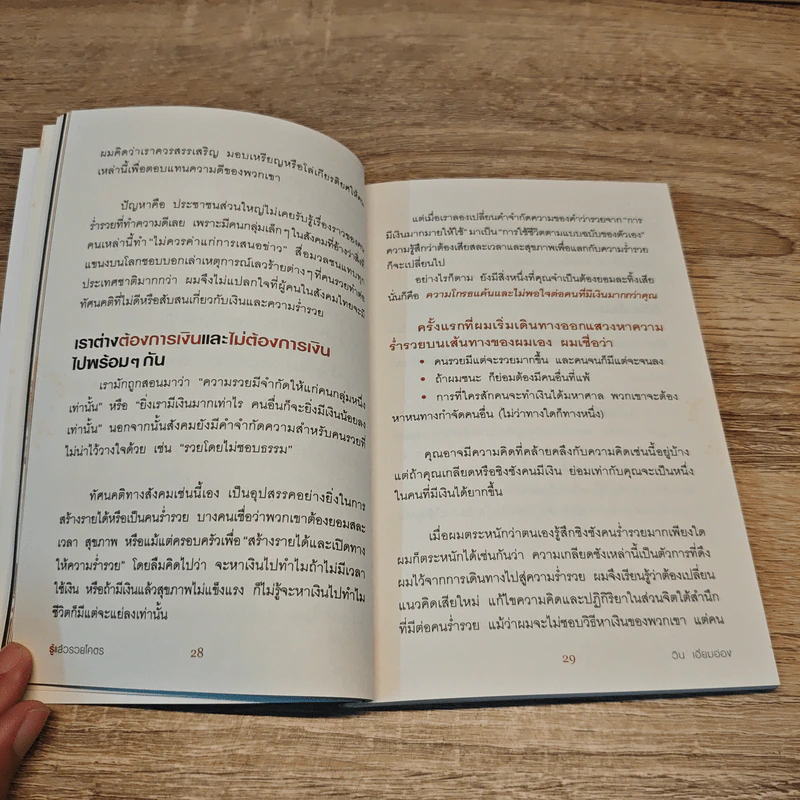 ผมคิดว่าเราควรสรรเสริญ มอบเหรียญหรือโล่เกียรติยศให้คน
เหล่านี้เพื่อตอบแทนความดีของพวกเขา
ปัญหาคือ ประชาชนส่วนใหญ่ไม่เคยรับรู้เรื่องราวของคน
ร่ำรวยที่ทำความดีเลย เพราะมีคนกลุ่มเล็กๆ ในสังคมที่อ้างว่าสิ่งที่
คนเหล่านี้ทำ “ไม่ควรค่าแก่การเสนอข่าว” สื่อมวลชนแทบทุก
แขนงบนโลกชอบบอกเล่าเหตุการณ์เลวร้ายต่างๆ ที่คนรวยทำต่อ
ประเทศชาติมากกว่า ผมจึงไม่แปลกใจที่ผู้คนในสังคมไทยจะมี
ทัศนคติที่ไม่ดีหรือสับสนเกี่ยวกับเงินและความร่ำรวย
เราต่างต้องการเงินและไม่ต้องการเงิน
ไปพร้อมๆ กัน
เรามักถูกสอนมาว่า “ความรวยมีจำกัดให้แก่คนกลุ่มหนึ่ง
เท่านั้น” หรือ “ยิ่งเรามีเงินมากเท่าไร คนอื่นก็จะยิ่งมีเงินน้อยลง
เท่านั้น” นอกจากนั้นสังคมยังมีคำจำกัดความสำหรับคนรวยที่
ไม่น่าไว้วางใจด้วย เช่น “รวยโดยไม่ชอบธรรม”
ทัศนคติทางสังคมเช่นนี้เอง เป็นอุปสรรคอย่างยิ่งในการ
สร้างรายได้หรือเป็นคนร่ำรวย บางคนเชื่อว่าพวกเขาต้องยอมสละ
เวลา สุขภาพ หรือแม้แต่ครอบครัวเพื่อ “สร้างรายได้และเปิดทาง
ให้ความร่ำรวย” โดยลืมคิดไปว่า จะหาเงินไปทำไมถ้าไม่มีเวลา
ใช้เงิน หรือถ้ามีเงินแล้วสุขภาพไม่แข็งแรง ก็ไม่รู้จะหาเงินไปทำไม
ชีวิตก็มีแต่จะแย่ลงเท่านั้น
รู้แล้วรวยโคตร 28
แต่เมื่อเราลองเปลี่ยนคำจำกัดความของคำว่ารวยจาก “การ
มีเงินมากมายให้ใช้” มาเป็น “การใช้ชีวิตตามแบบฉบับของตัวเอง”
ความรู้สึกว่าต้องเสียสละเวลาและสุขภาพเพื่อแลกกับความร่ำรวย
ก็จะเปลี่ยนไป
อย่างไรก็ตาม ยังมีสิ่งหนึ่งที่คุณจำเป็นต้องยอมละทิ้งเสีย
นั่นก็คือ ความโกรธแค้นและไม่พอใจต่อคนที่มีเงินมากกว่าคุณ
ครั้งแรกที่ผมเริ่มเดินทางออกแสวงหาความ
ร่ำรวยบนเส้นทางของผมเอง ผมเชื่อว่า
• คนรวยมีแต่จะรวยมากขึ้น และคนจนก็มีแต่จะจนลง
• ถ้าผมชนะ ก็ย่อมต้องมีคนอื่นที่แพ้
• การที่ใครสักคนจะทำเงินได้มหาศาล พวกเขาจะต้อง
หาหนทางกำจัดคนอื่น (ไม่ว่าทางใดก็ทางหนึ่ง)
คุณอาจมีความคิดที่คล้ายคลึงกับความคิดเช่นนี้อยู่บ้าง
แต่ถ้าคุณเกลียดหรือชิงชังคนมีเงิน ย่อมเท่ากับคุณจะเป็นหนึ่ง
ในคนที่มีเงินได้ยากขึ้น
เมื่อผมตระหนักว่าตนเองรู้สึกชิงชังคนร่ำรวยมากเพียงใด
ผมก็ตระหนักได้เช่นกันว่า ความเกลียดชังเหล่านี้เป็นตัวการที่ดึง
ผมไว้จากการเดินทางไปสู่ความร่ำรวย ผมจึงเรียนรู้ว่าต้องเปลี่ยน
แนวคิดเสียใหม่ แก้ไขความคิดและปฏิกิริยาในส่วนจิตใต้สำนึก
ที่มีต่อคนร่ำรวย แม้ว่าผมจะไม่ชอบวิธีหาเงินของพวกเขา แต่คน
29 วิน เอี่ยมอ่อง